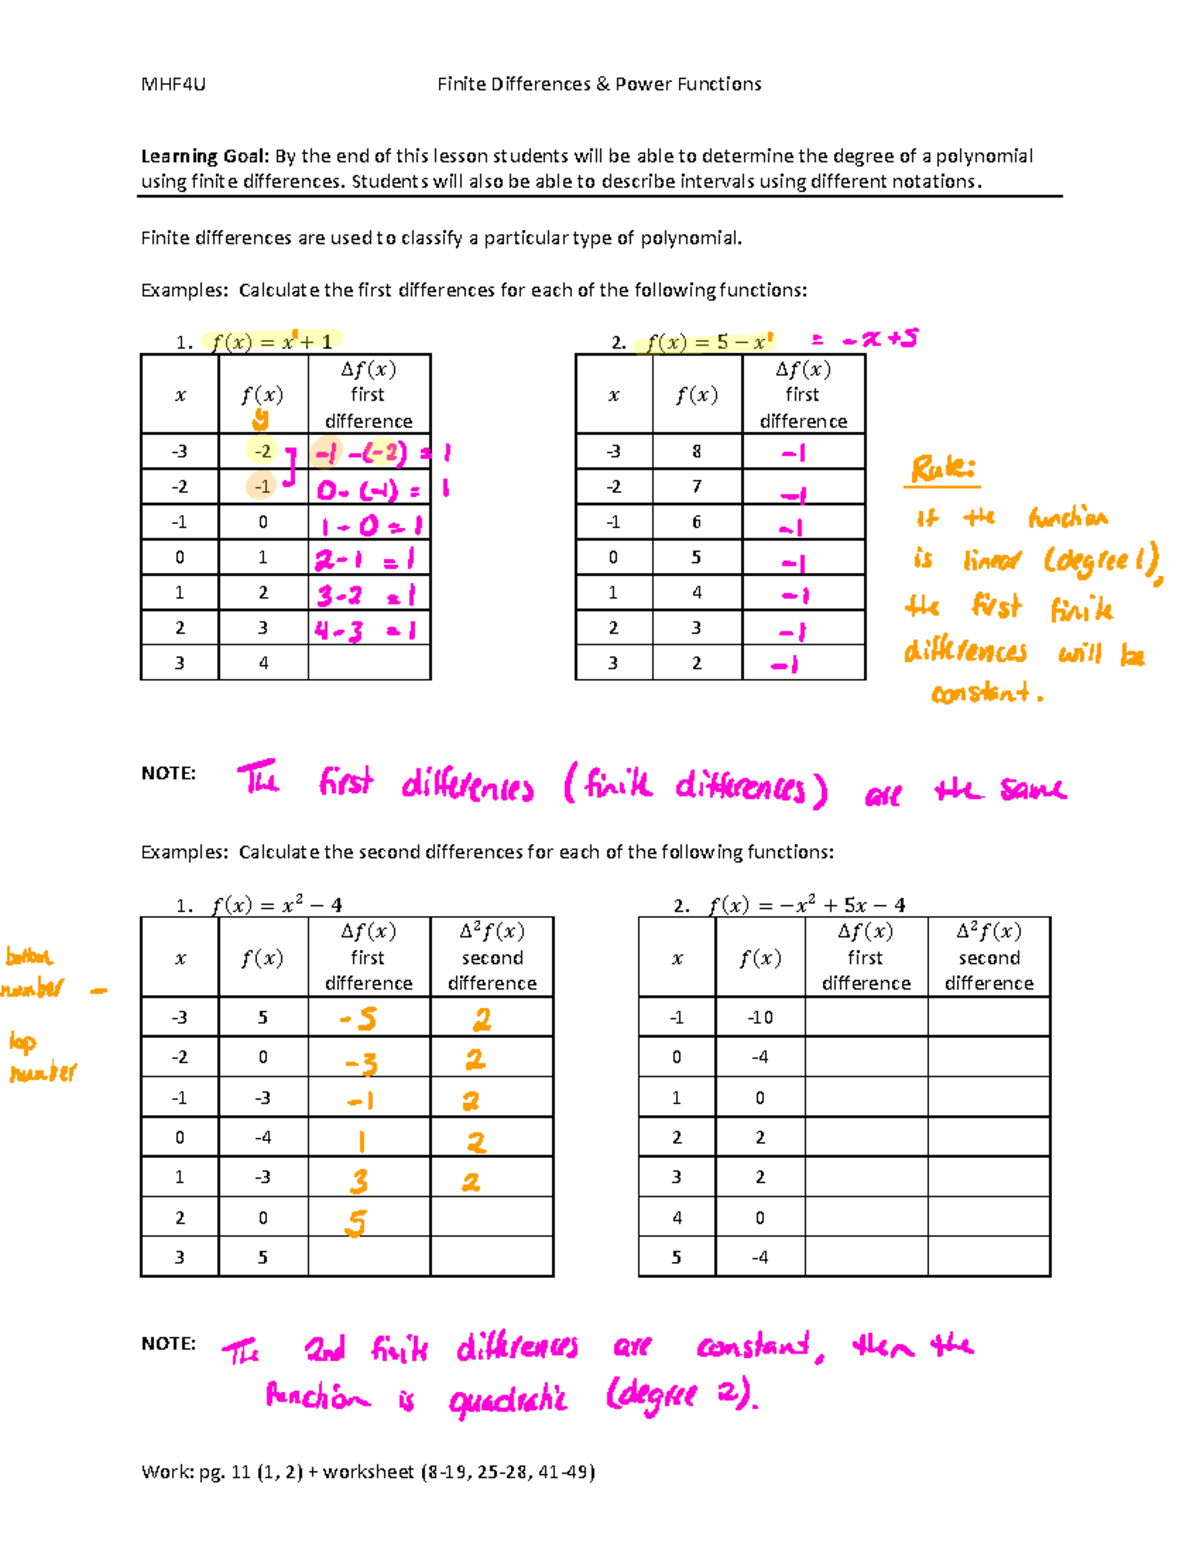 MHF4U Finite Differences & Power Functions
Learning Goal: By the end of this lesson students will be able to determine the degree of a polynomial
using finite differences. Students will also be able to describe intervals using different notations.
Finite differences are used to classify a particular type of polynomial.
Examples: Calculate the first differences for each of the following functions:
1. f(x) = x¹ + 1
x f(x) y Δf(x) first difference
-3 -2 -1 -(-2) = 1
-2 -1 0 - (-1) = 1
-1 0 1 - 0 = 1
0 1 2 - 1 = 1
1 2 3 - 2 = 1
2 3 4 - 3 = 1
3 4
2. f(x) = 5 − x¹ = -x +5
x f(x) Δf(x) first difference
-3 8 -1
-2 7 -1
-1 6 -1
0 5 -1
1 4 -1
2 3 -1
3 2 -1
Rule:
If the function
is linear (degree 1),
the first finite
differences will be
constant.
NOTE: The first differences (finite differences) are the same
Examples: Calculate the second differences for each of the following functions:
1. f(x) = x² − 4
x f(x) Δf(x) first difference Δ²f(x) second difference
-3 5 -5 2
-2 0 -3 2
-1 -3 -1 2
0 -4 1 2
1 -3 3 2
2 0 5
3 5
bottom
number -
top
number
2. f(x) = −x² + 5x − 4
x f(x) Δf(x) first difference Δ²f(x) second difference
-1 -10
0 -4
1 0
2 2
3 2
4 0
5 -4
NOTE: The 2nd finite differences are constant, then the
function is quadratic (degree 2).
Work: pg. 11 (1, 2) + worksheet (8-19, 25-28, 41-49)